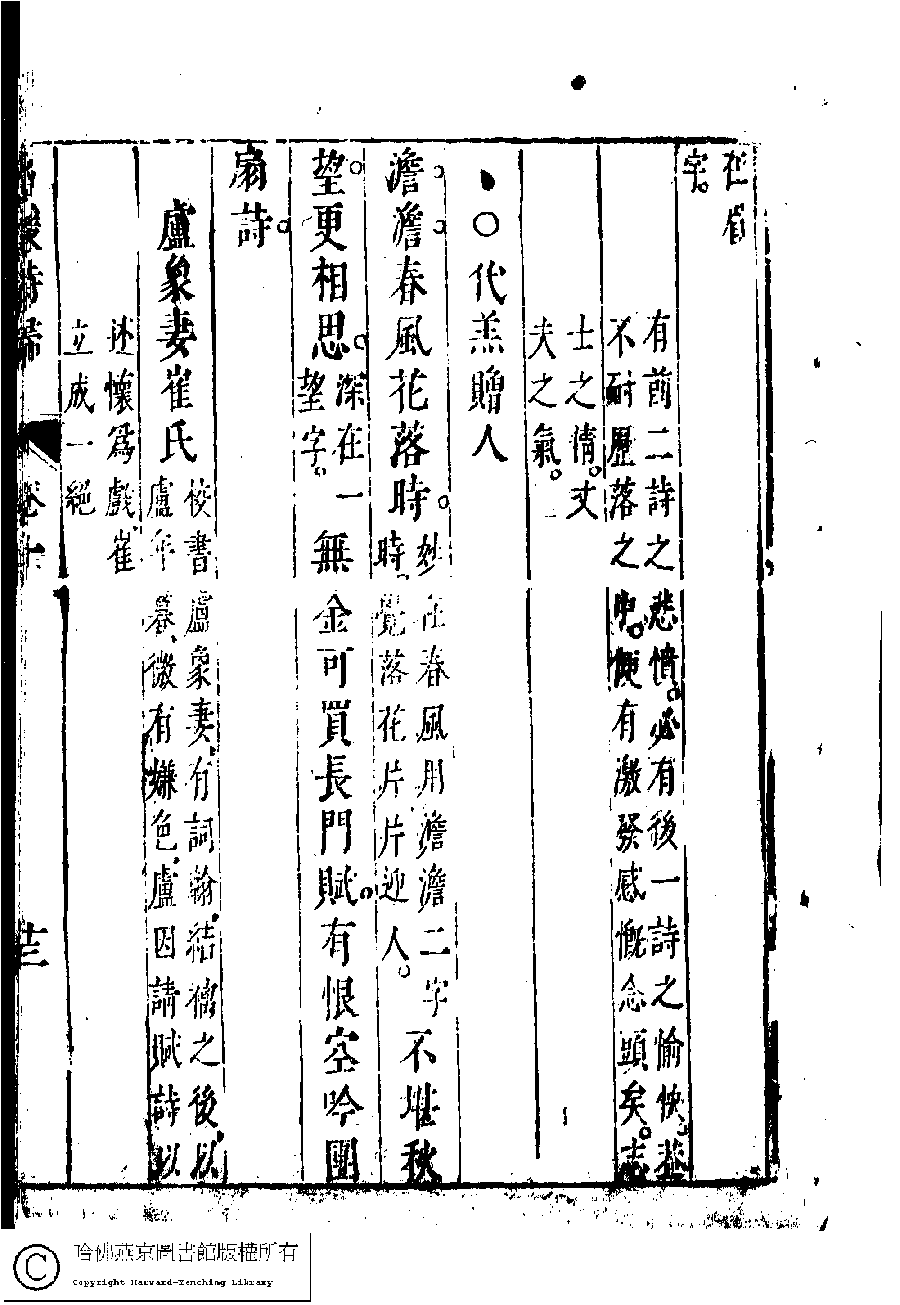 在
字。
有前二詩之悲憤。必有後一詩之愉快。蓋
不耐歷落之中。便有激發感慨念頭矣。志
士之情。丈
夫之氣。
〇代羔贈人
澹澹春風花落時。妙在春風用澹澹二字
時、覺落花片片迎人。不堪秋
望更相思。深在一
望字。無金可買長門賦。有恨空吟團
扇詩。
盧象妻崔氏
校書盧象妻、有詞翰、結褵之後、以
盧年暮、微有嫌色、盧因請賦詩以
述懷爲戲、崔
立成一絕
名媛詩歸 卷十
哈佛燕京圖書館版權所有
Copyright Harvard-Yenching Library